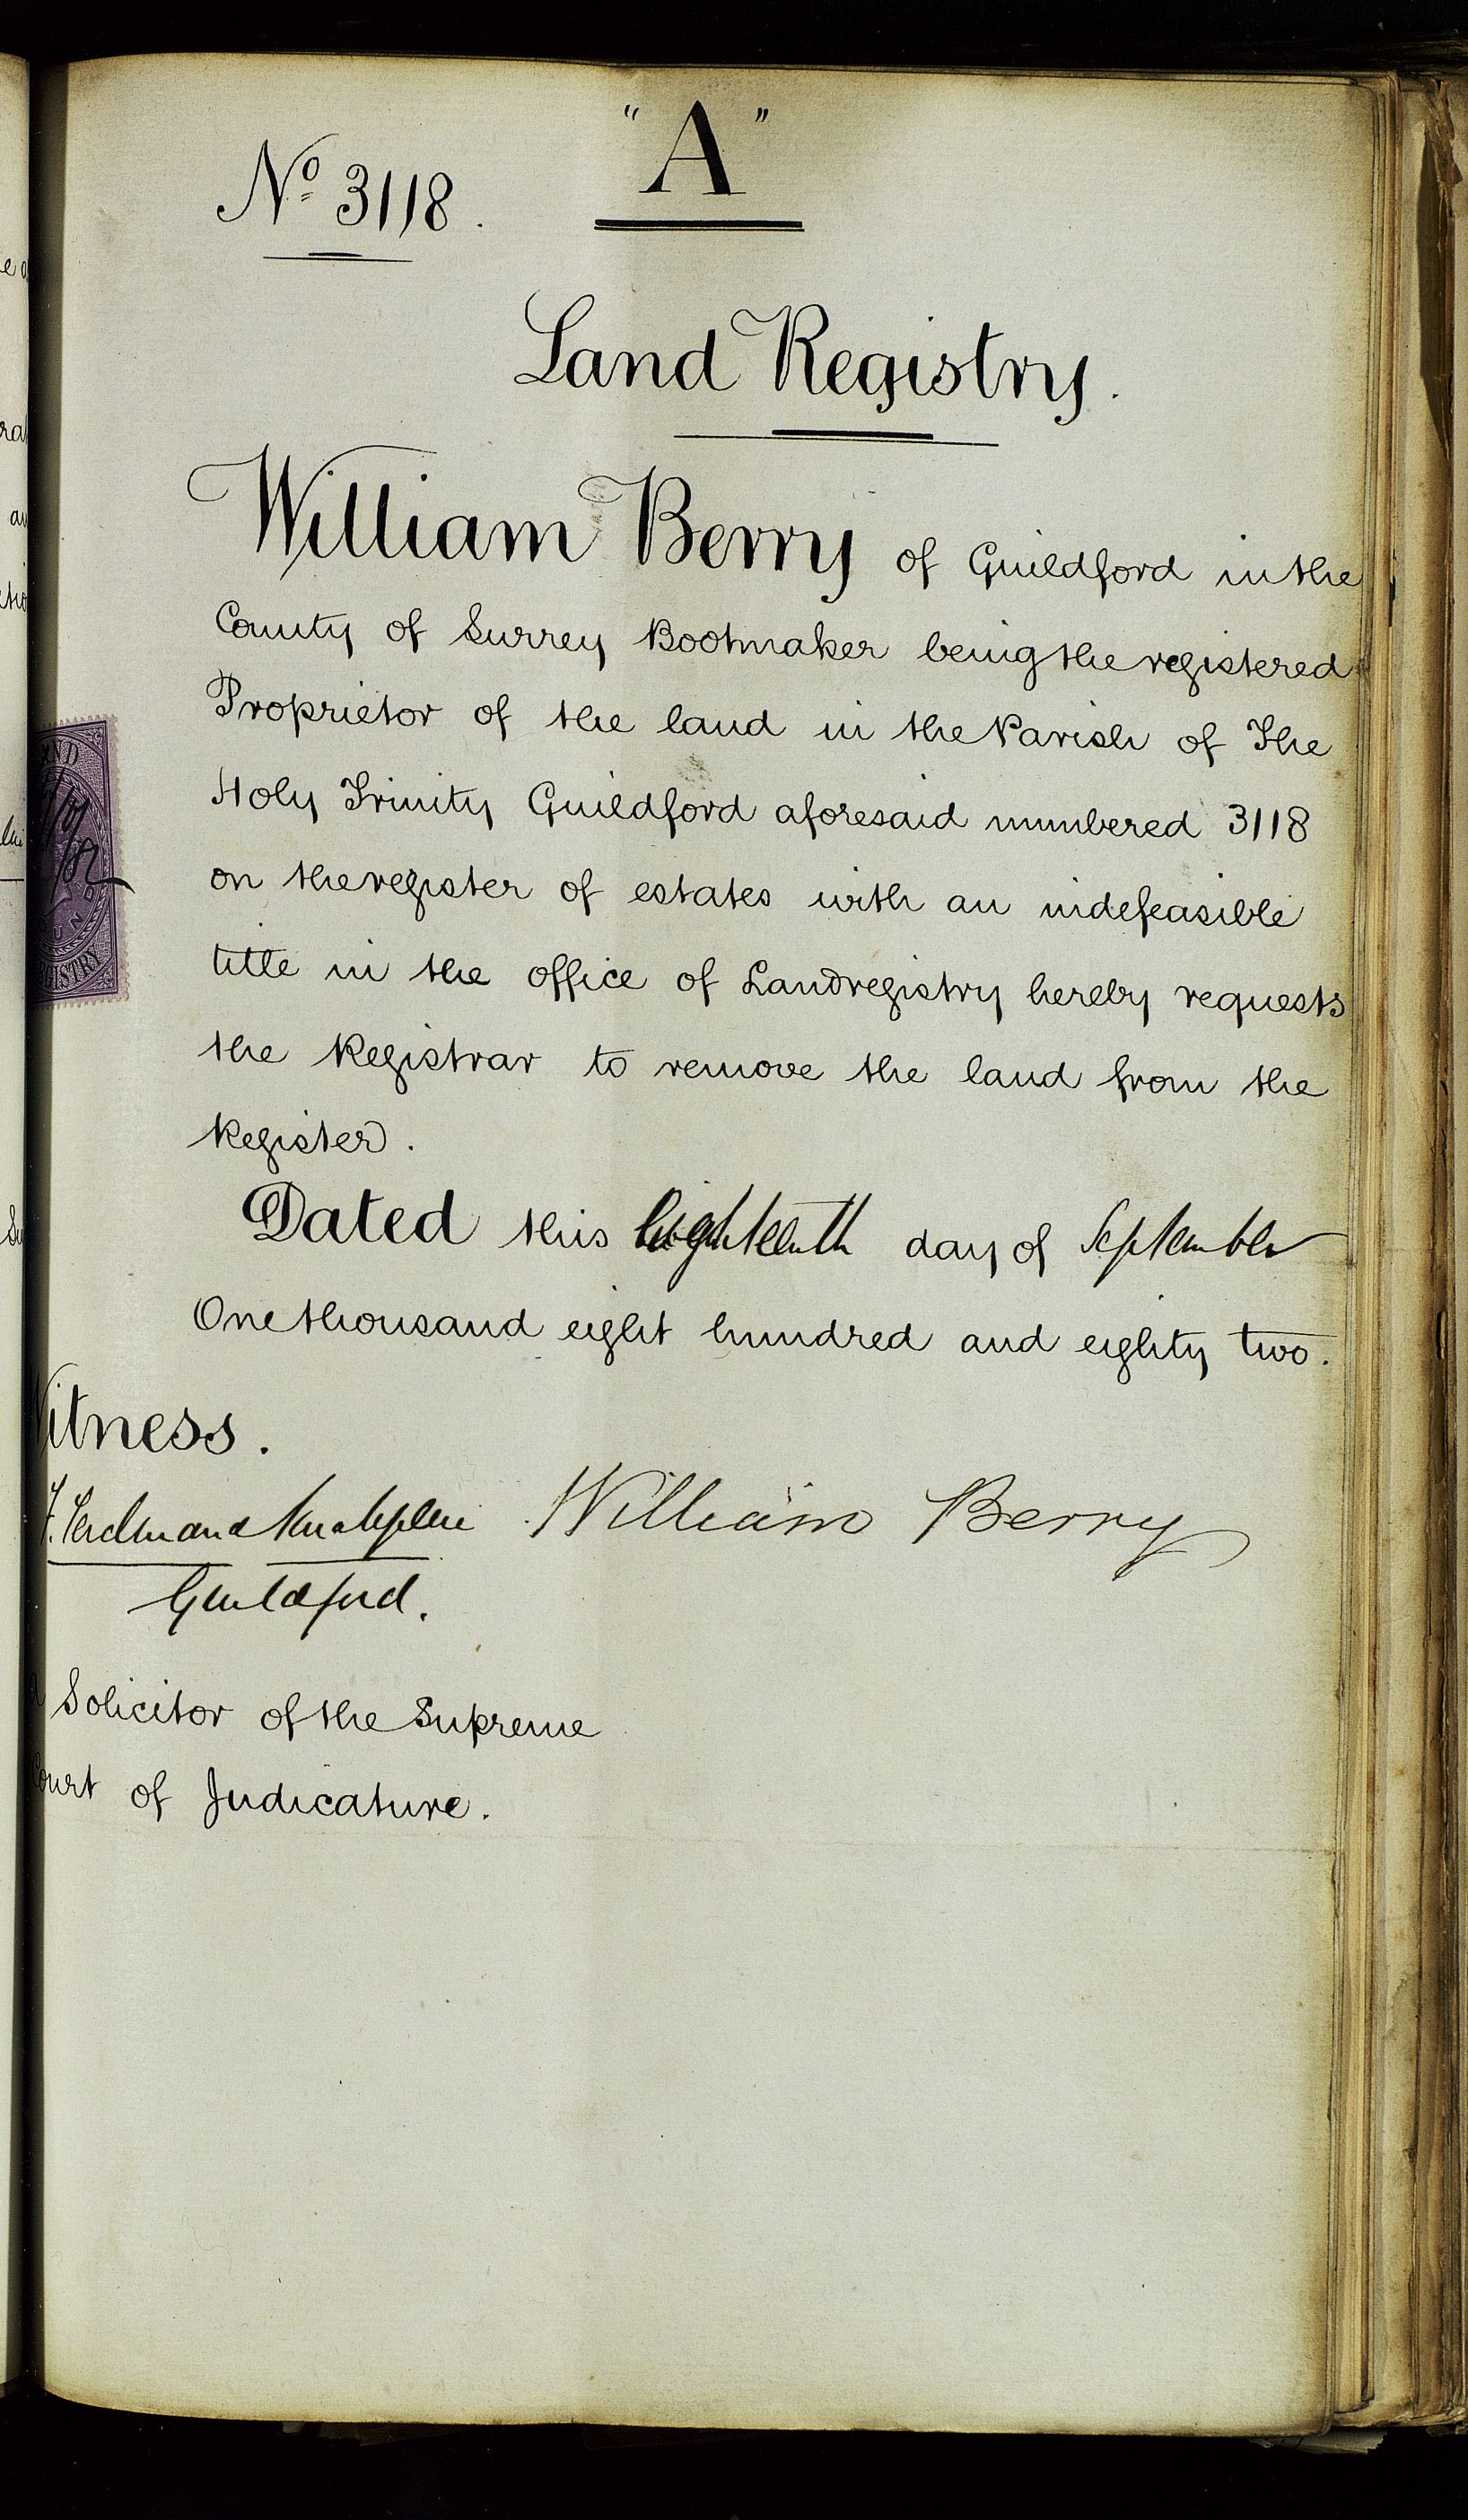 "A"
No 3118.
Land Registry.
William Berry of Guildford in the
County of Surrey Bootmaker being the registered
Proprietor of the land in the Parish of The
Holy Trinity Guildford aforesaid numbered 3118
on the register of estates with an indefeasible
title in the office of Land registry hereby requests
the Registrar to remove the land from the
Register.
Dated this Eighteenth day of September
One thousand eight hundred and eighty two.
Witness.
William Berry
Guildford.
a Solicitor of the Supreme
Court of Judicature.